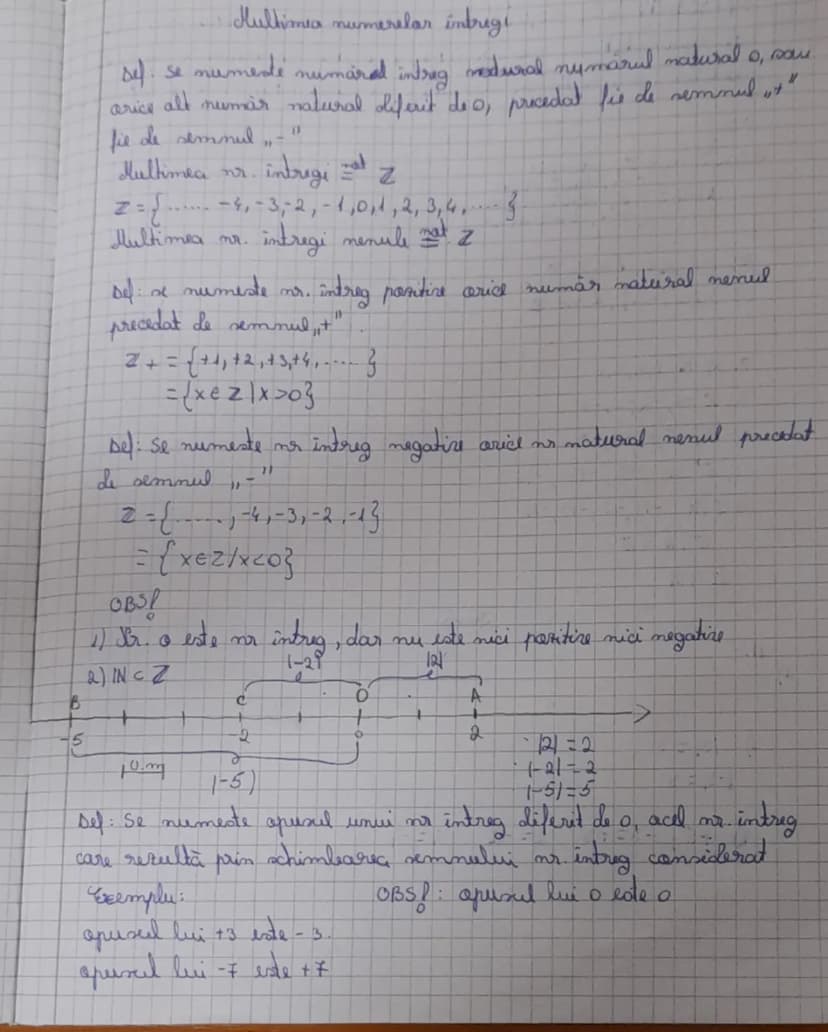 Mulțimea numerelor întregi
Def: se numește numărul întreg numărul natural 0, sau
orice alt număr natural diferit de 0, precedat fie de semnul „+"
fie de semnul „-"
Mulțimea nr. întregi not= Z
Z={...... -4,-3,-2,-1,0,1,2,3,4,.....}
Mulțimea nr. întregi nenule not= Z
Def: se numește nr. întreg pozitiv orice număr natural nenul
precedat de semnul „+".
Z+ = {+1,+2,+3,+4,.....}
={x∈Z|x>0}
Def: Se numește nr întreg negativ orice nr natural nenul precedat
de semnul „-"
Z={.....,-4,-3,-2,-1}
={x∈Z/x<0}
OBS!
1) Nr. 0 este nr întreg, dar nu este nici pozitiv nici negativ
|-2| |2|
2) IN ⊂ Z
B C O A
-5 -2 0 2
1u.m
|-5|
|2|=2
|-2|=2
|-5|=5
Def: Se numește opusul unui nr întreg diferit de 0, acel nr. întreg
care rezultă prin schimbarea semnului nr. întreg considerat
Exemplu: OBS!: opusul lui 0 este 0
opusul lui +3 este -3.
opusul lui -7 este +7